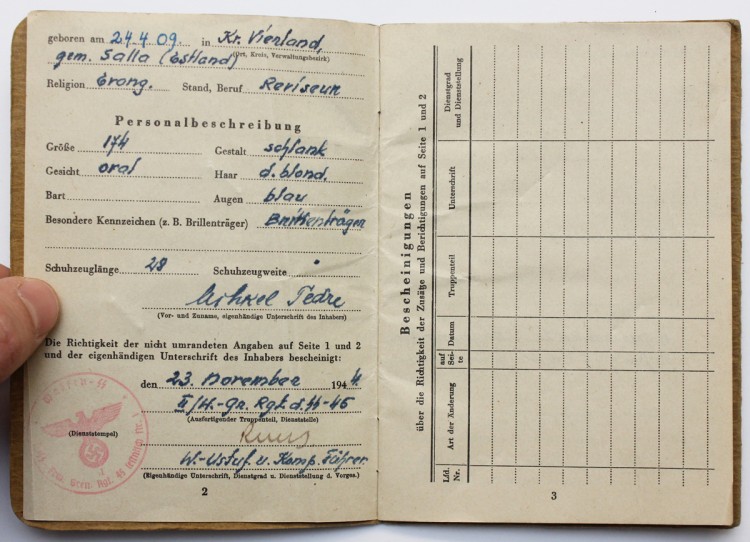 geboren am 24.4.09. in Kr. Vierland,
gem. Salla (Estland) (Ort, Kreis, Verwaltungsbezirk)
Religion Evang. Stand, Beruf
Personalbeschreibung
Größe 174 Gestalt schlank
Gesicht oval Haar d. blond.
Bart Augen blau
Besondere Kennzeichen (z. B. Brillenträger) Brillenträger
Schuhzeuglänge 28 Schuhzeugweite
(Vor- und Zuname, eigenhändige Unterschrift des Inhabers)
Die Richtigkeit der nicht umrandeten Angaben auf Seite 1 und 2
und der eigenhändigen Unterschrift des Inhabers bescheinigt:
den 23. November 1944.
II/W.-Gr. Rgt. d. SS-45
(Ausfertigender Truppenteil, Dienststelle)
(Dienststempel)
W.-Ustuf. u. Komp. Führer
(Eigenhändige Unterschrift, Dienstgrad u. Dienststellung d. Vorges.)
2
Waffen-SS
Bescheinigungen
über die Richtigkeit der Zusätze und Berichtigungen auf Seite 1 und 2
Lfd. Nr.
Art der Änderung
auf Sei- te
Datum
Truppenteil
Unterschrift
Dienstgrad und Dienststellung
3